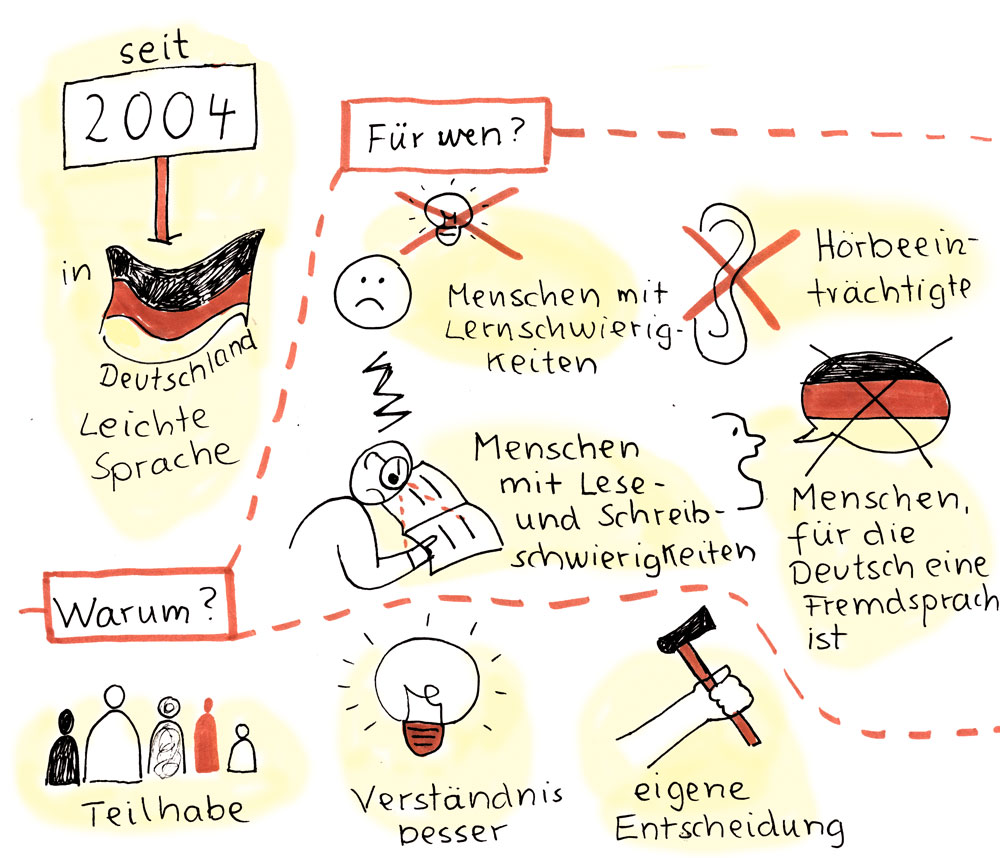 seit
2004
in
Deutschland
Leichte
Sprache
Für wen?
Menschen mit
Lernschwierig-
keiten
Hörbeein-
trächtigte
Menschen
mit Lese-
und Schreib-
schwierigkeiten
Menschen,
für die
Deutsch eine
Fremdsprach
ist
Warum?
Teilhabe
Verständnis
besser
eigene
Entscheidung